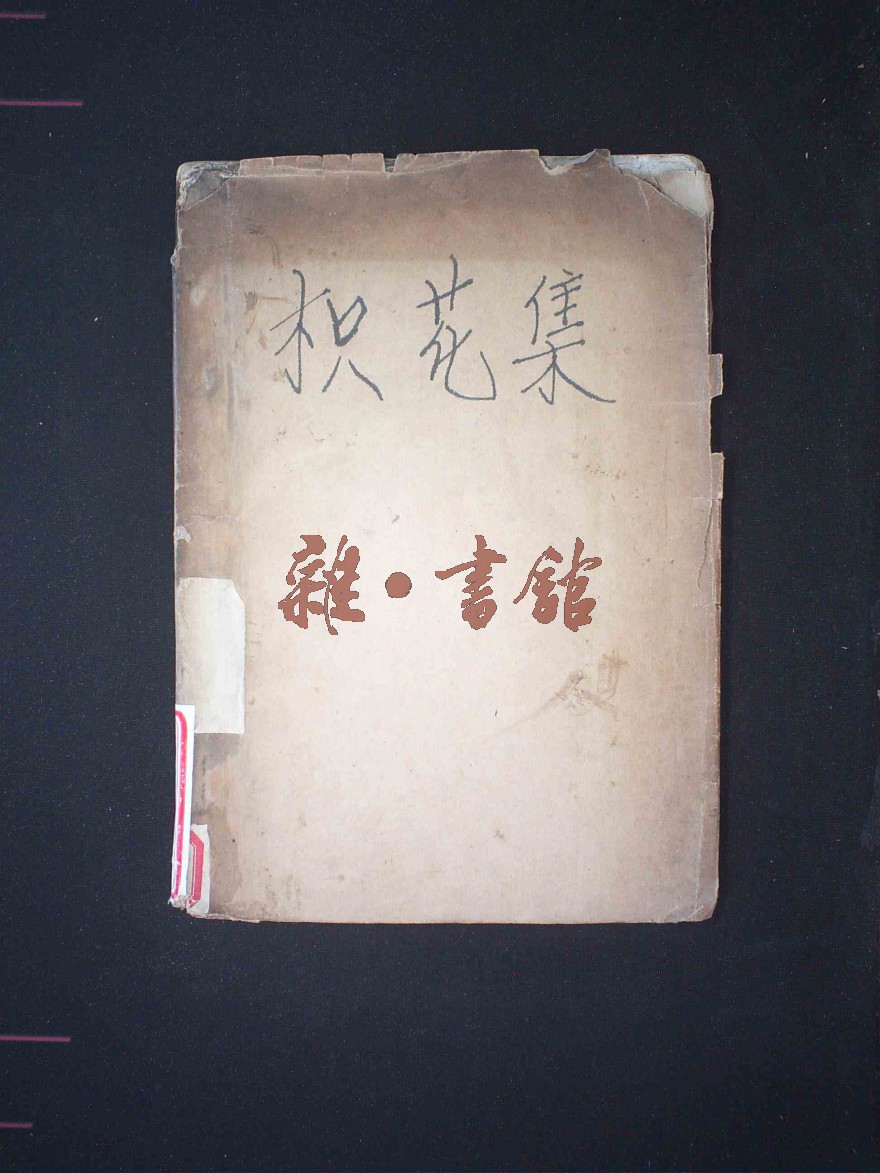 枳花集
雜·書館